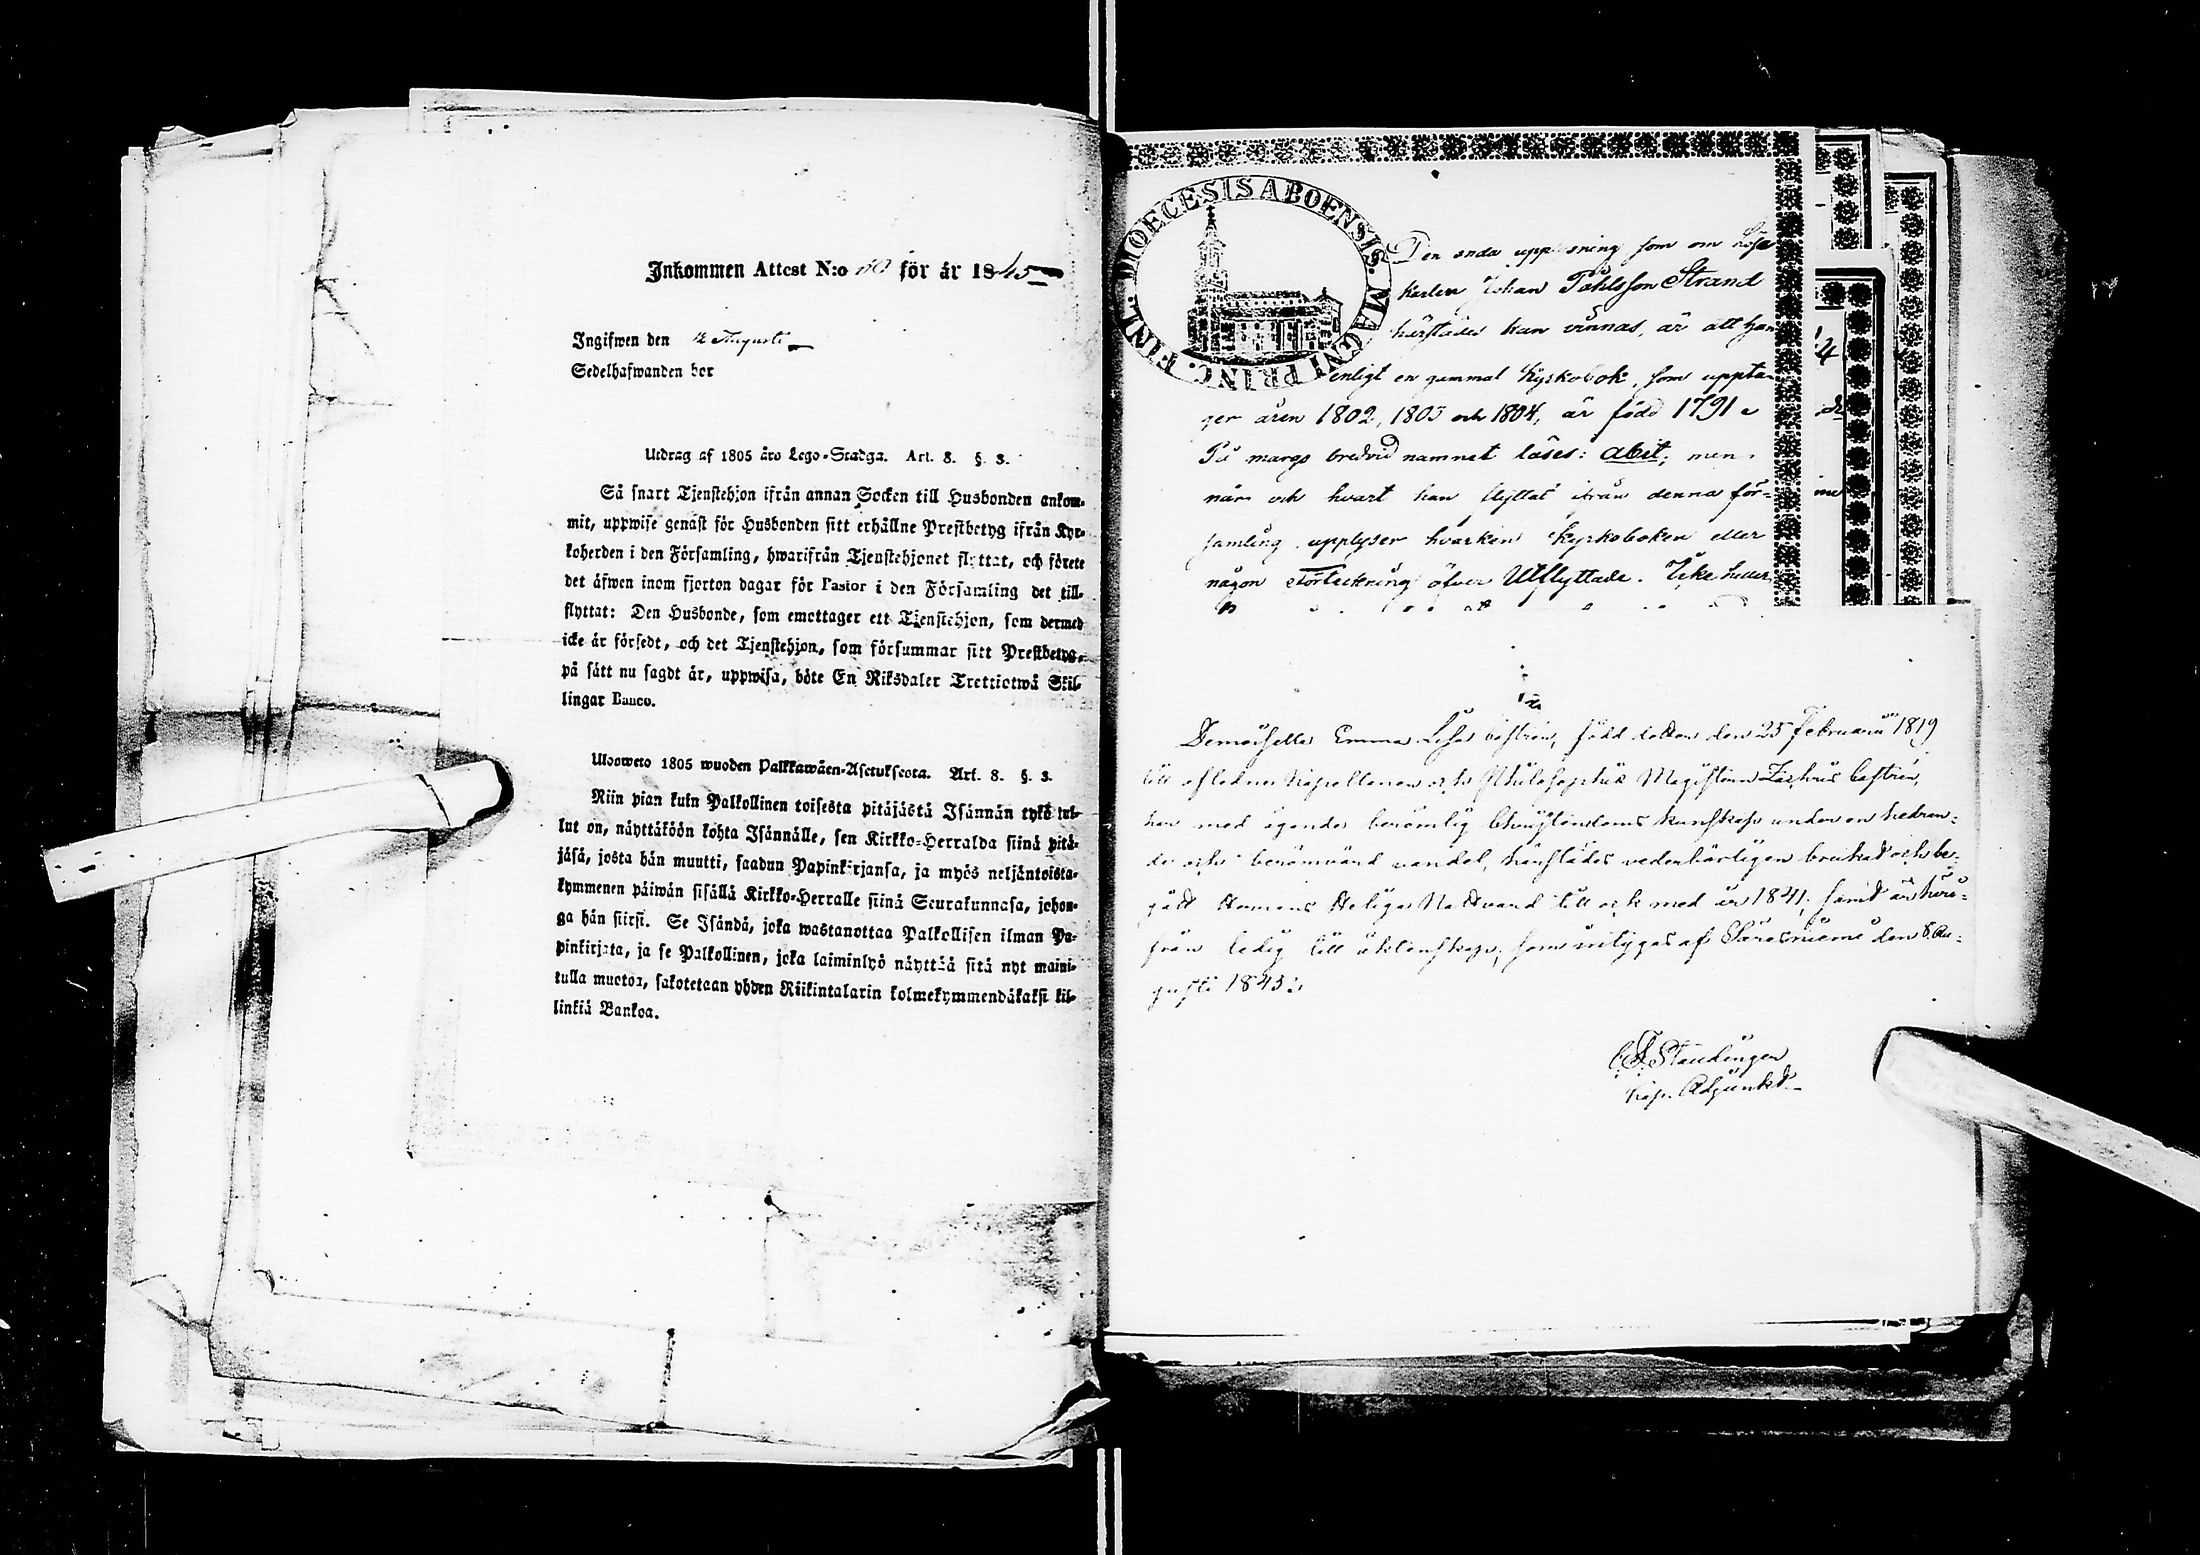 Inkommen Attest N:o för år 1845
Ingifwen den 12 Augusti
Sedelhafwanden bor
Utdrag af 1805 års Lego-Stadga. Art. 8. §. 3.
Så snart Tjenstehjon ifrån annan Socken till Husbonden ankom-
mit, uppwise genast för Husbonden sitt erhållne Prestbetyg ifrån Kyr-
koherden i den Församling, hwarifrån Tjenstehjonet flyttat, och förete
det äfwen inom fjorton dagar för Pastor i den Församling det till-
flyttat: Den Husbonde, som emottager ett Tjenstehjon, som dermed
icke är försedt, och det Tjenstehjon, som försummar sitt Prestbetyg,
på sätt nu sagdt är, uppwisa, böte En Riksdaler Trettiotwå Skil-
lingar Banco.
Ulosweto 1805 wuoden Palkkawäen-Asetuksesta. Art. 8. §. 3.
Niin pian kuin Palkollinen toisesta pitäjästä Isännän tykö tul-
lut on, näyttäköön kohta Isännälle, sen Kirkko-Herralda siinä pitä-
jäsä, josta hän muutti, saadun Papinkirjansa, ja myös neljäntoista-
kymmenen päiwän sisällä Kirkko-Herralle siinä Seurakunnasa, johon-
ga hän siirsi. Se Isändä, joka wastanottaa Palkollisen ilman Pa-
pinkirjata, ja se Palkollinen, joka laiminlyö näyttää sitä nyt maini-
tulla muotoa, sakotetaan yhden Riikintalarin kolmekymmendäkaksi kil-
linkiä Bankoa.
DIOECESIS ABOENSIS. MAGNI PRINC. FINL.
Den enda upplysning som om
karlen Johan Påhlsson Strand
härstädes kan vinnas, är att han
enligt en gammal Kyrkobok, som uppta-
ger åren 1802, 1803 och 1804, är född 1791
På margo bredvid namnet läses: abit, men
när och hvart han flyttat ifrån denna för-
samling upplyser hvarken Kyrkoboken eller
någon Förteckning öfver Utflyttade. Icke heller
Demoiselle Emma Lisa Castrén, född dotter den 25 Februarii 1819
till aflidne Kapellanen och Philosophiæ Magistern Castrén,
har med ägande berömlig Christendoms kunskap under en hedran-
de och berömvärd vandel, härstädes vederbörligen brukat och be-
gått Herrans Heliga Nattvard till och med år 1841, samt är häri-
från ledig till äktenskap; som intygas af Säräisniemi den 8 Au-
gusti 1843.
Standinger
Kap. Adjunkt